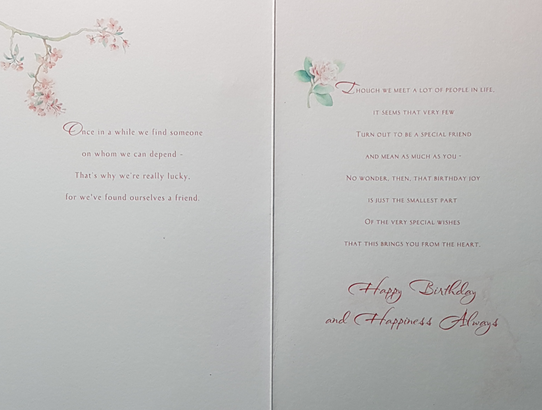 Once in a while we find someone
on whom we can depend –
That's why we're really lucky,
for we've found ourselves a friend.
Though we meet a lot of people in life,
it seems that very few
Turn out to be a special friend
and mean as much as you -
No wonder, then, that birthday joy
is just the smallest part
Of the very special wishes
that this brings you from the heart.
Happy Birthday
and Happiness Always